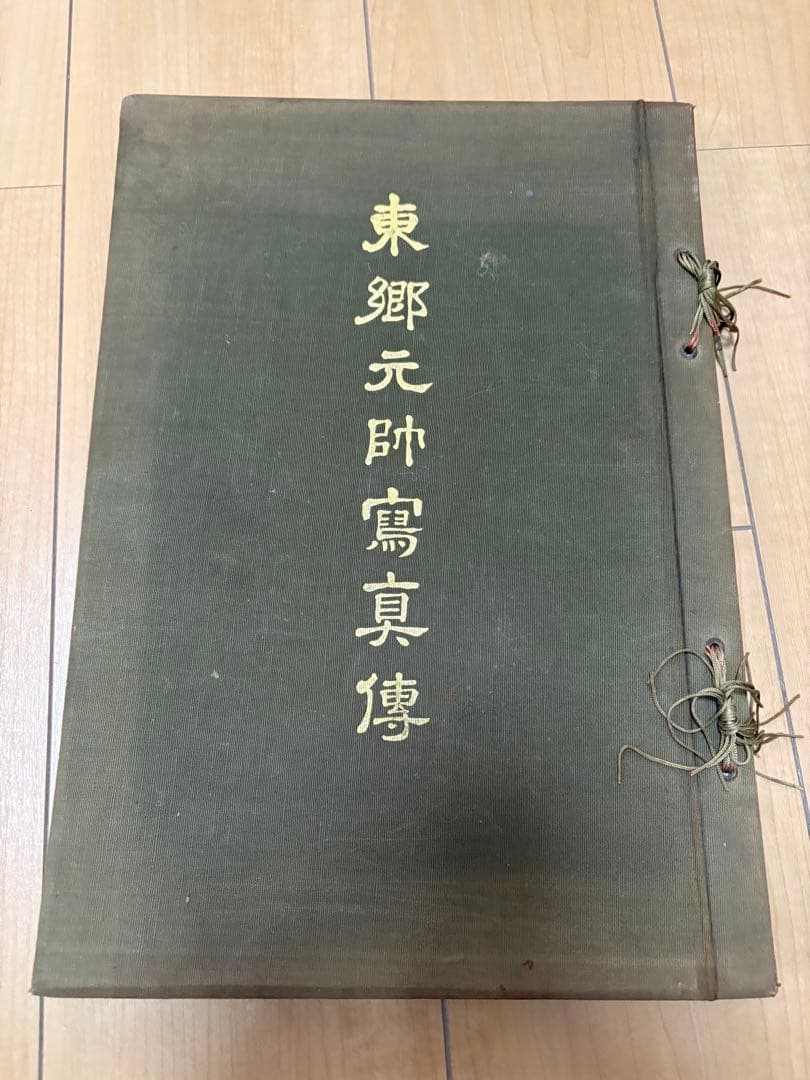 東郷元帥寫真傳